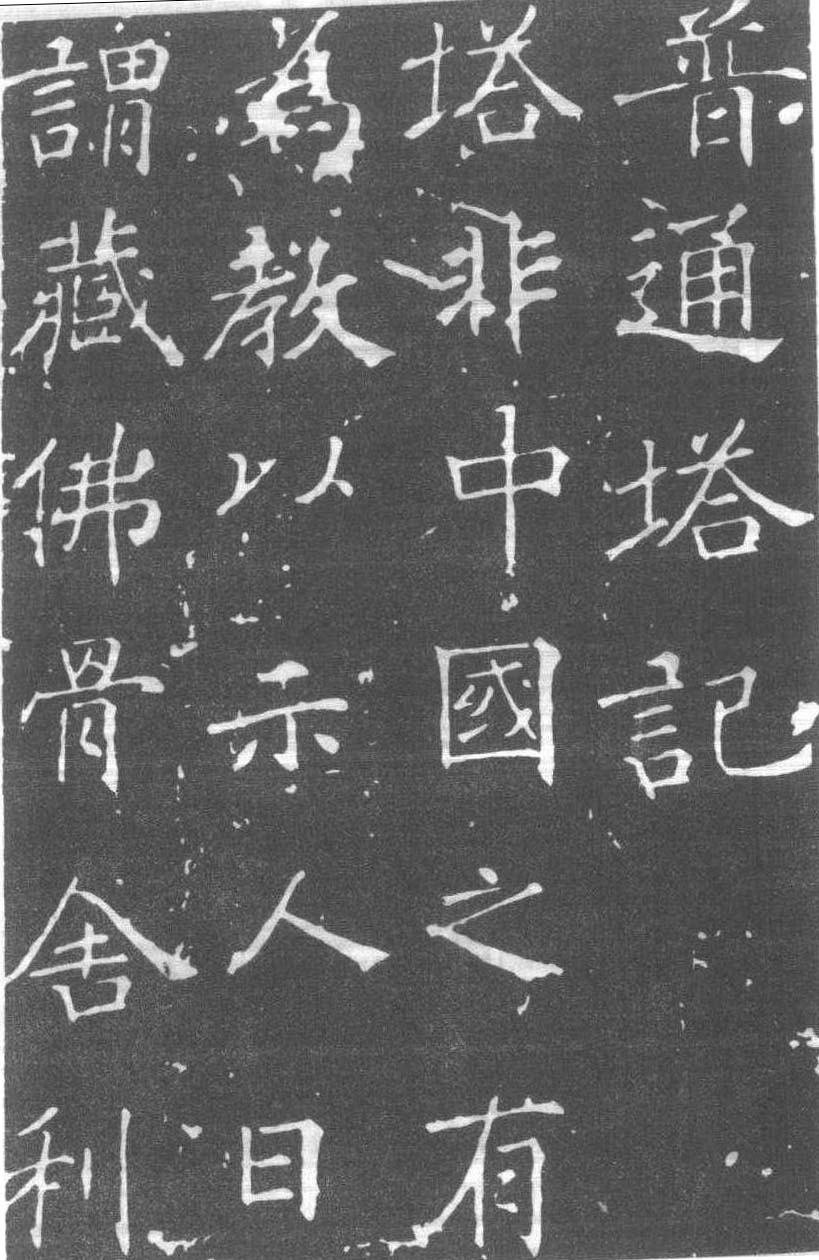 普通塔記
塔非中國之有
為教以示人曰
謂藏佛骨舍利